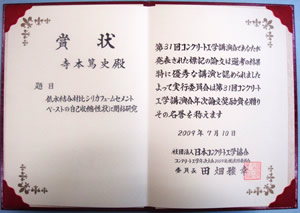 賞状
寺本篤史殿
題目
低水結合材比シリカフュームセメント
ペーストの自己収縮性状に関する研究
第31回コンクリート工学講演会であなたが
発表された標記の論文は選考の結果
特に優秀な講演と認められました
よって実行委員会は第31回コンクリート
工学講演会年次論文奨励賞を贈り
その名誉を称えます
2009年7月10日
社団法人日本コンクリート工学協会
委員長 田畑雅幸